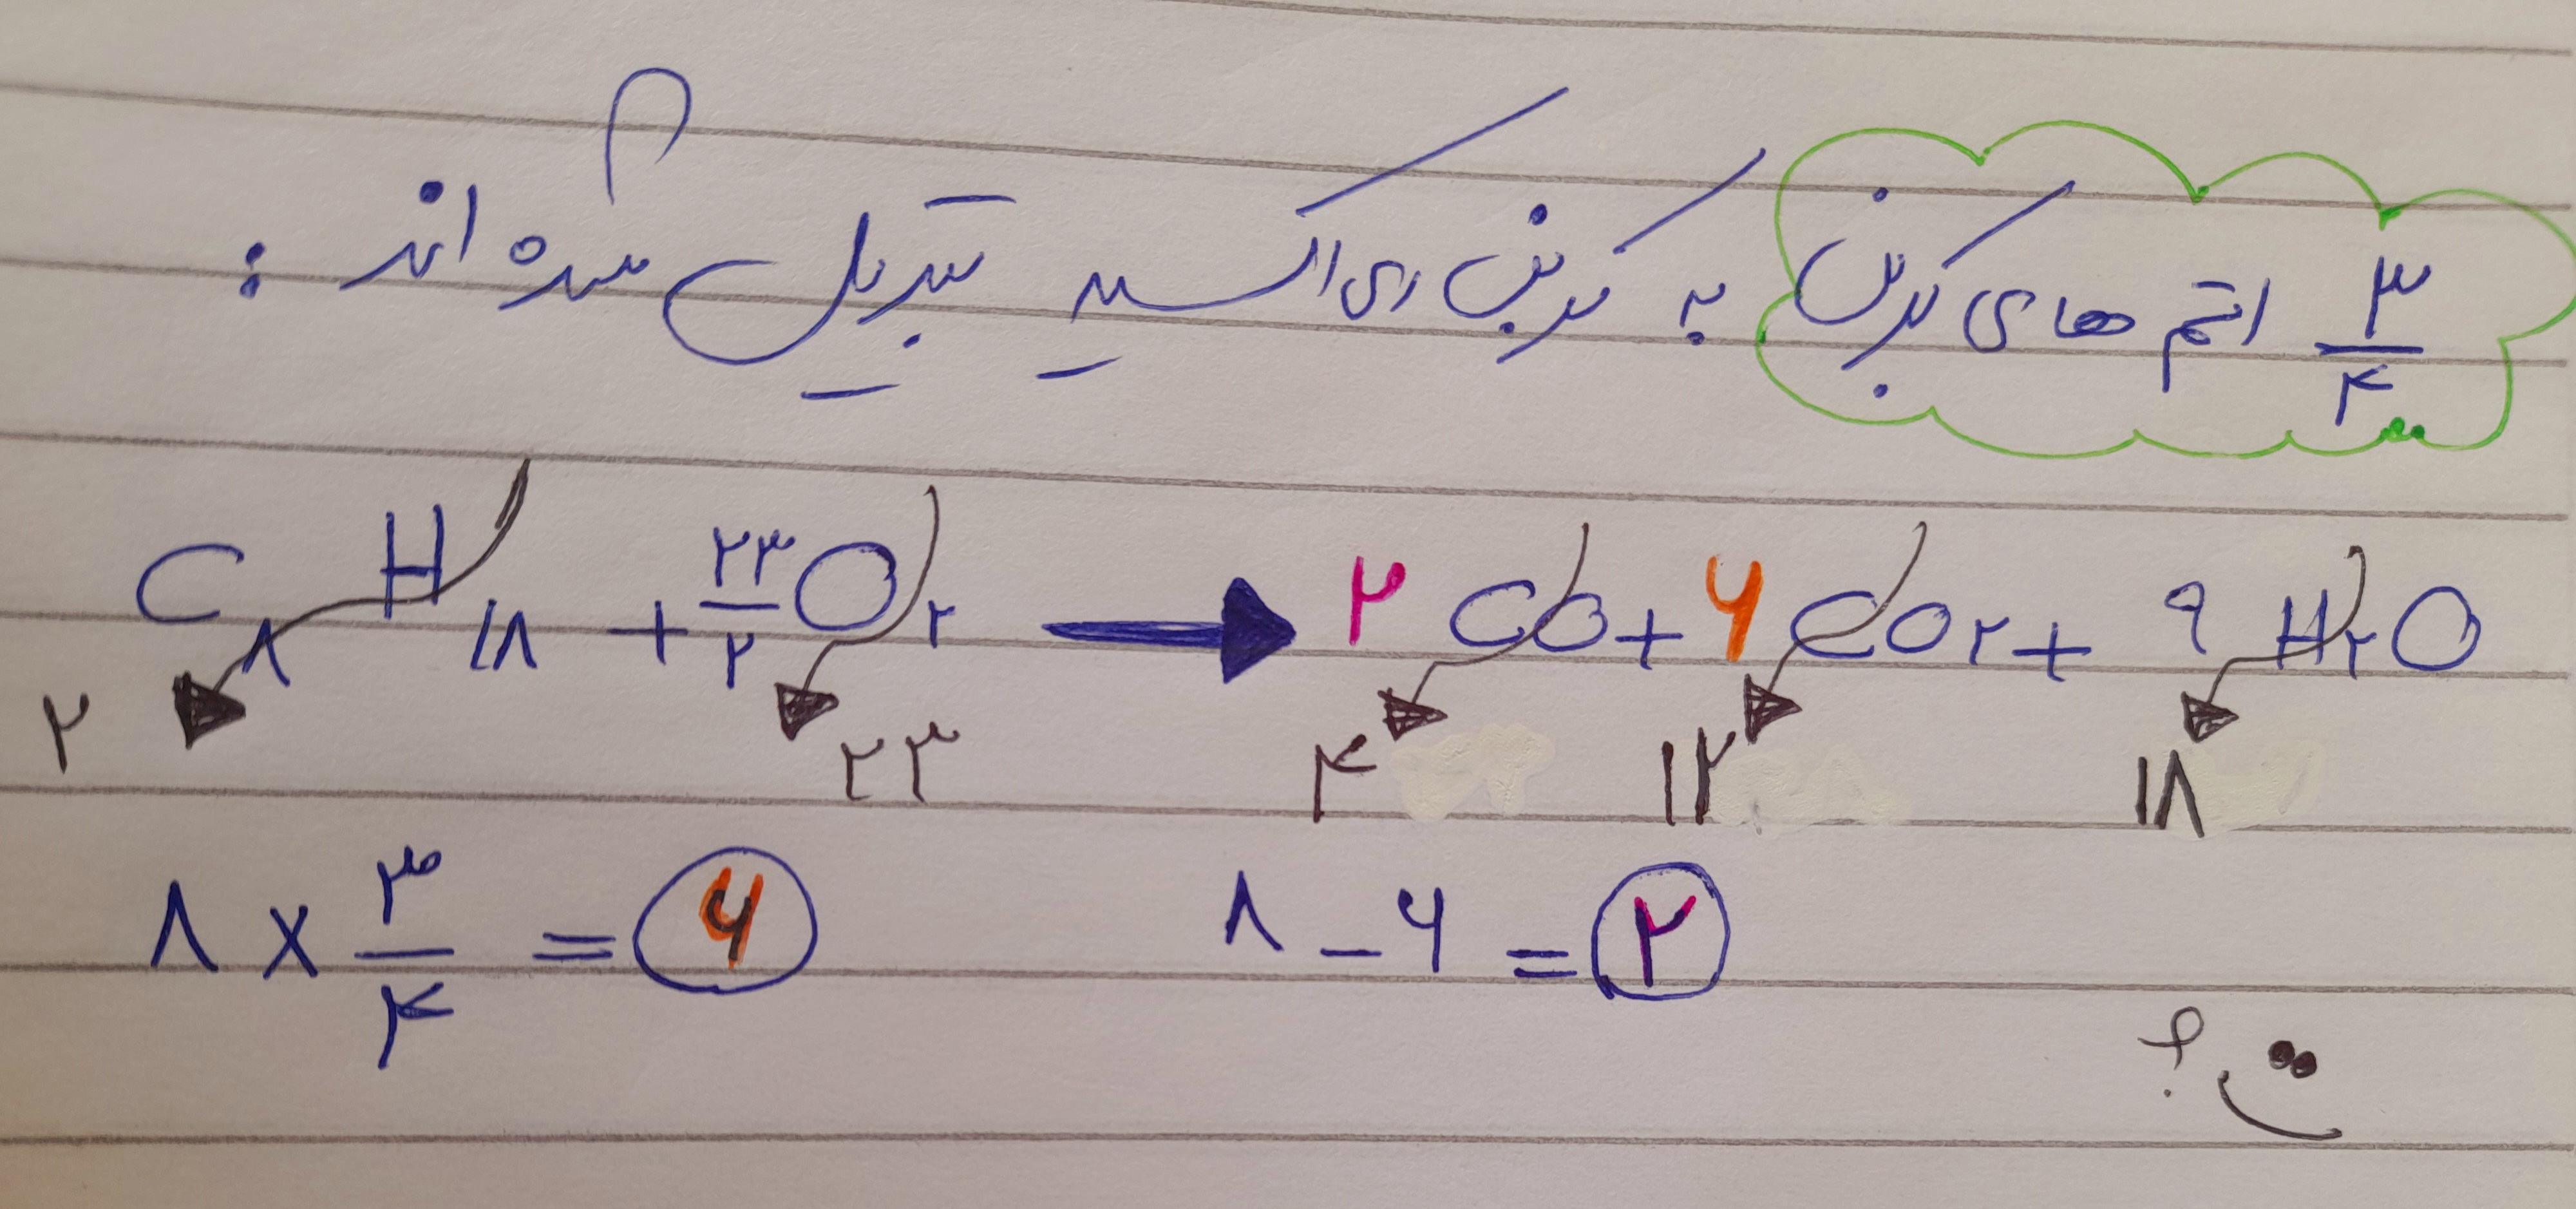 ۳/۴ اتم های کربن به کربن دی اکسید تبدیل شده اند :
C۸ H۱۸ + ۲۳/۲ O۲ → ۲ CO + ۶ CO۲ + ۹ H۲O
۲ ۲۳ ۴ ۱۲ ۱۸
۸ × ۳/۴ = ۶ ۸ - ۶ = ۲
؟